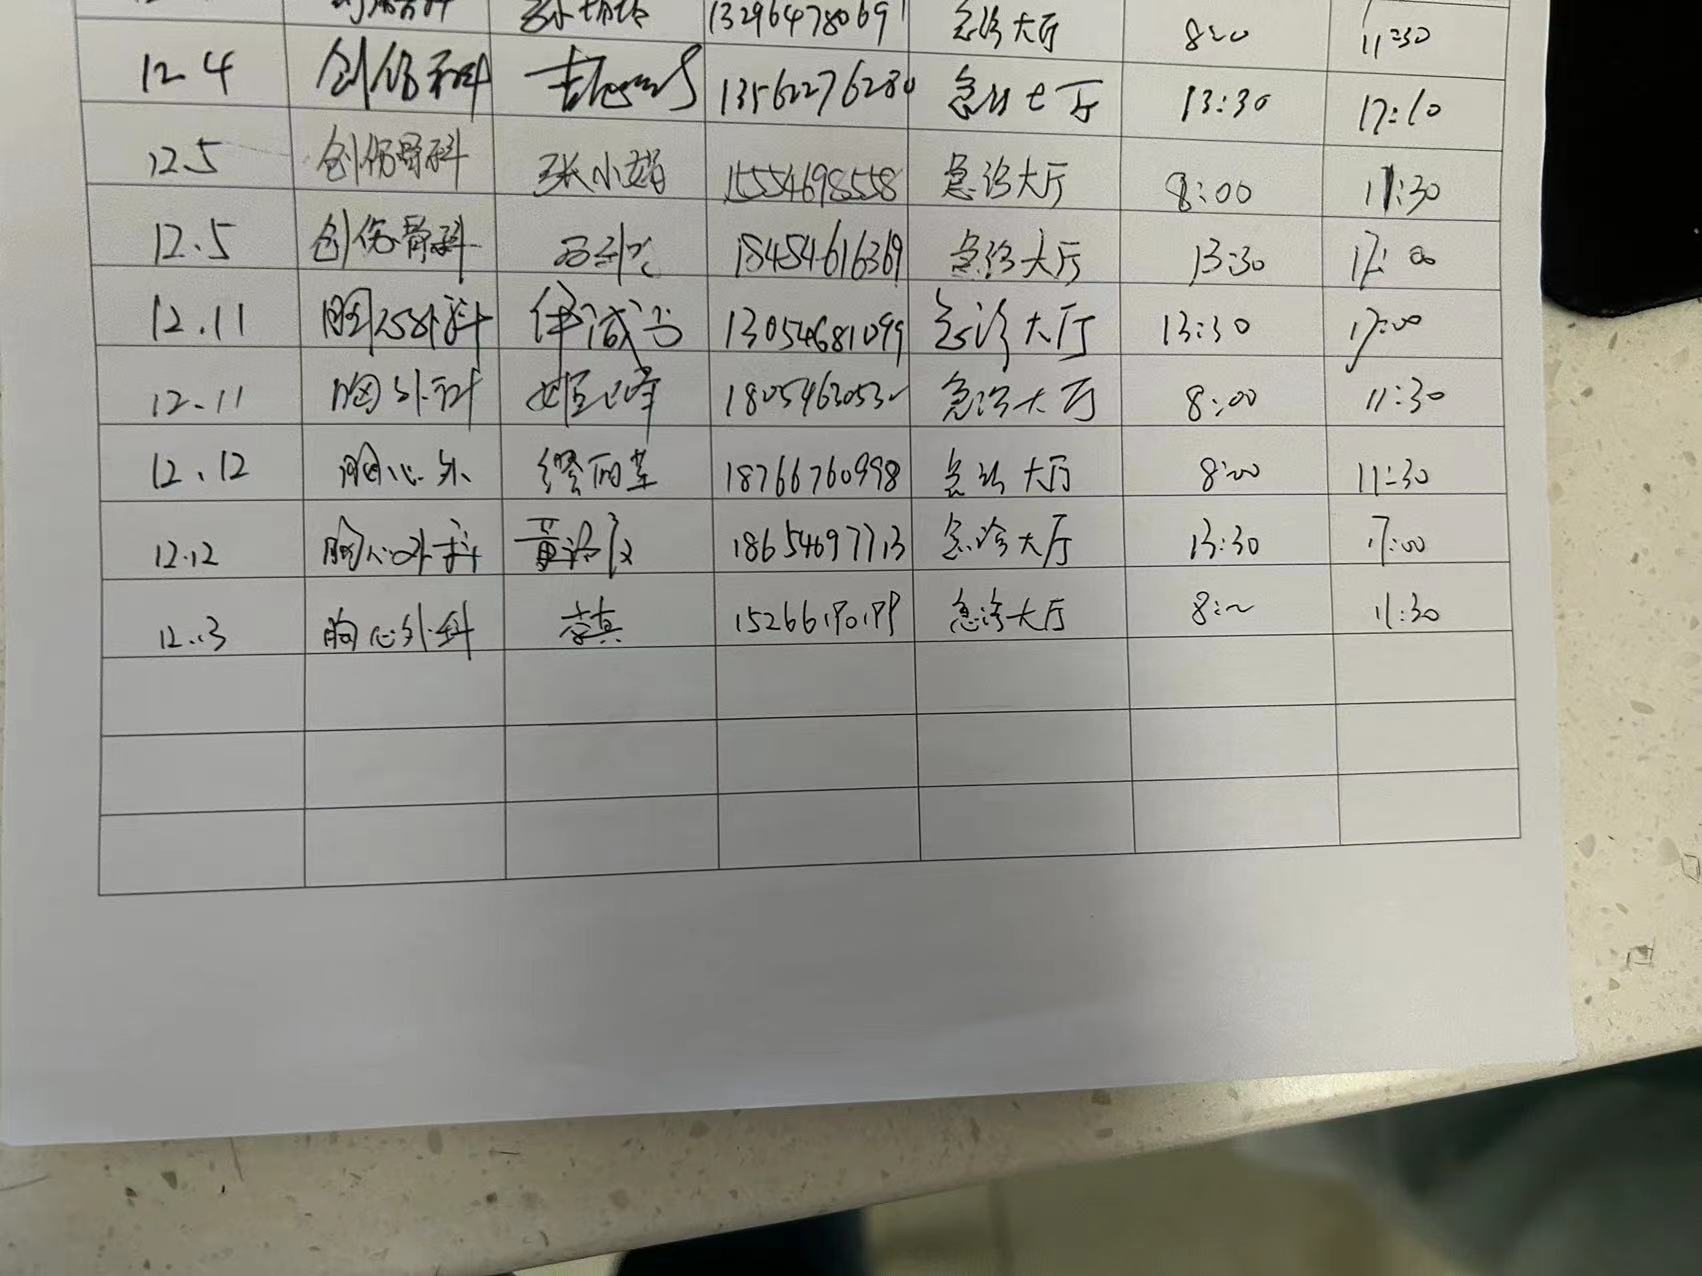 13296478069 急诊大厅 8:00 11:30
12.4 创伤骨科 13562276280 急诊大厅 13:30 17:10
12.5 创伤骨科 张小娟 15554698558 急诊大厅 8:00 11:30
12.5 创伤骨科 18454616369 急诊大厅 13:30 17:00
12.11 胸心外科 13054681099 急诊大厅 13:30 17:00
12.11 胸外科 姬峰 急诊大厅 8:00 11:30
12.12 胸心外 18766760998 急诊大厅 8:00 11:30
12.12 胸心外科 18654697713 急诊大厅 13:30 17:00
12.13 胸心外科 李真 急诊大厅 8:00 11:30